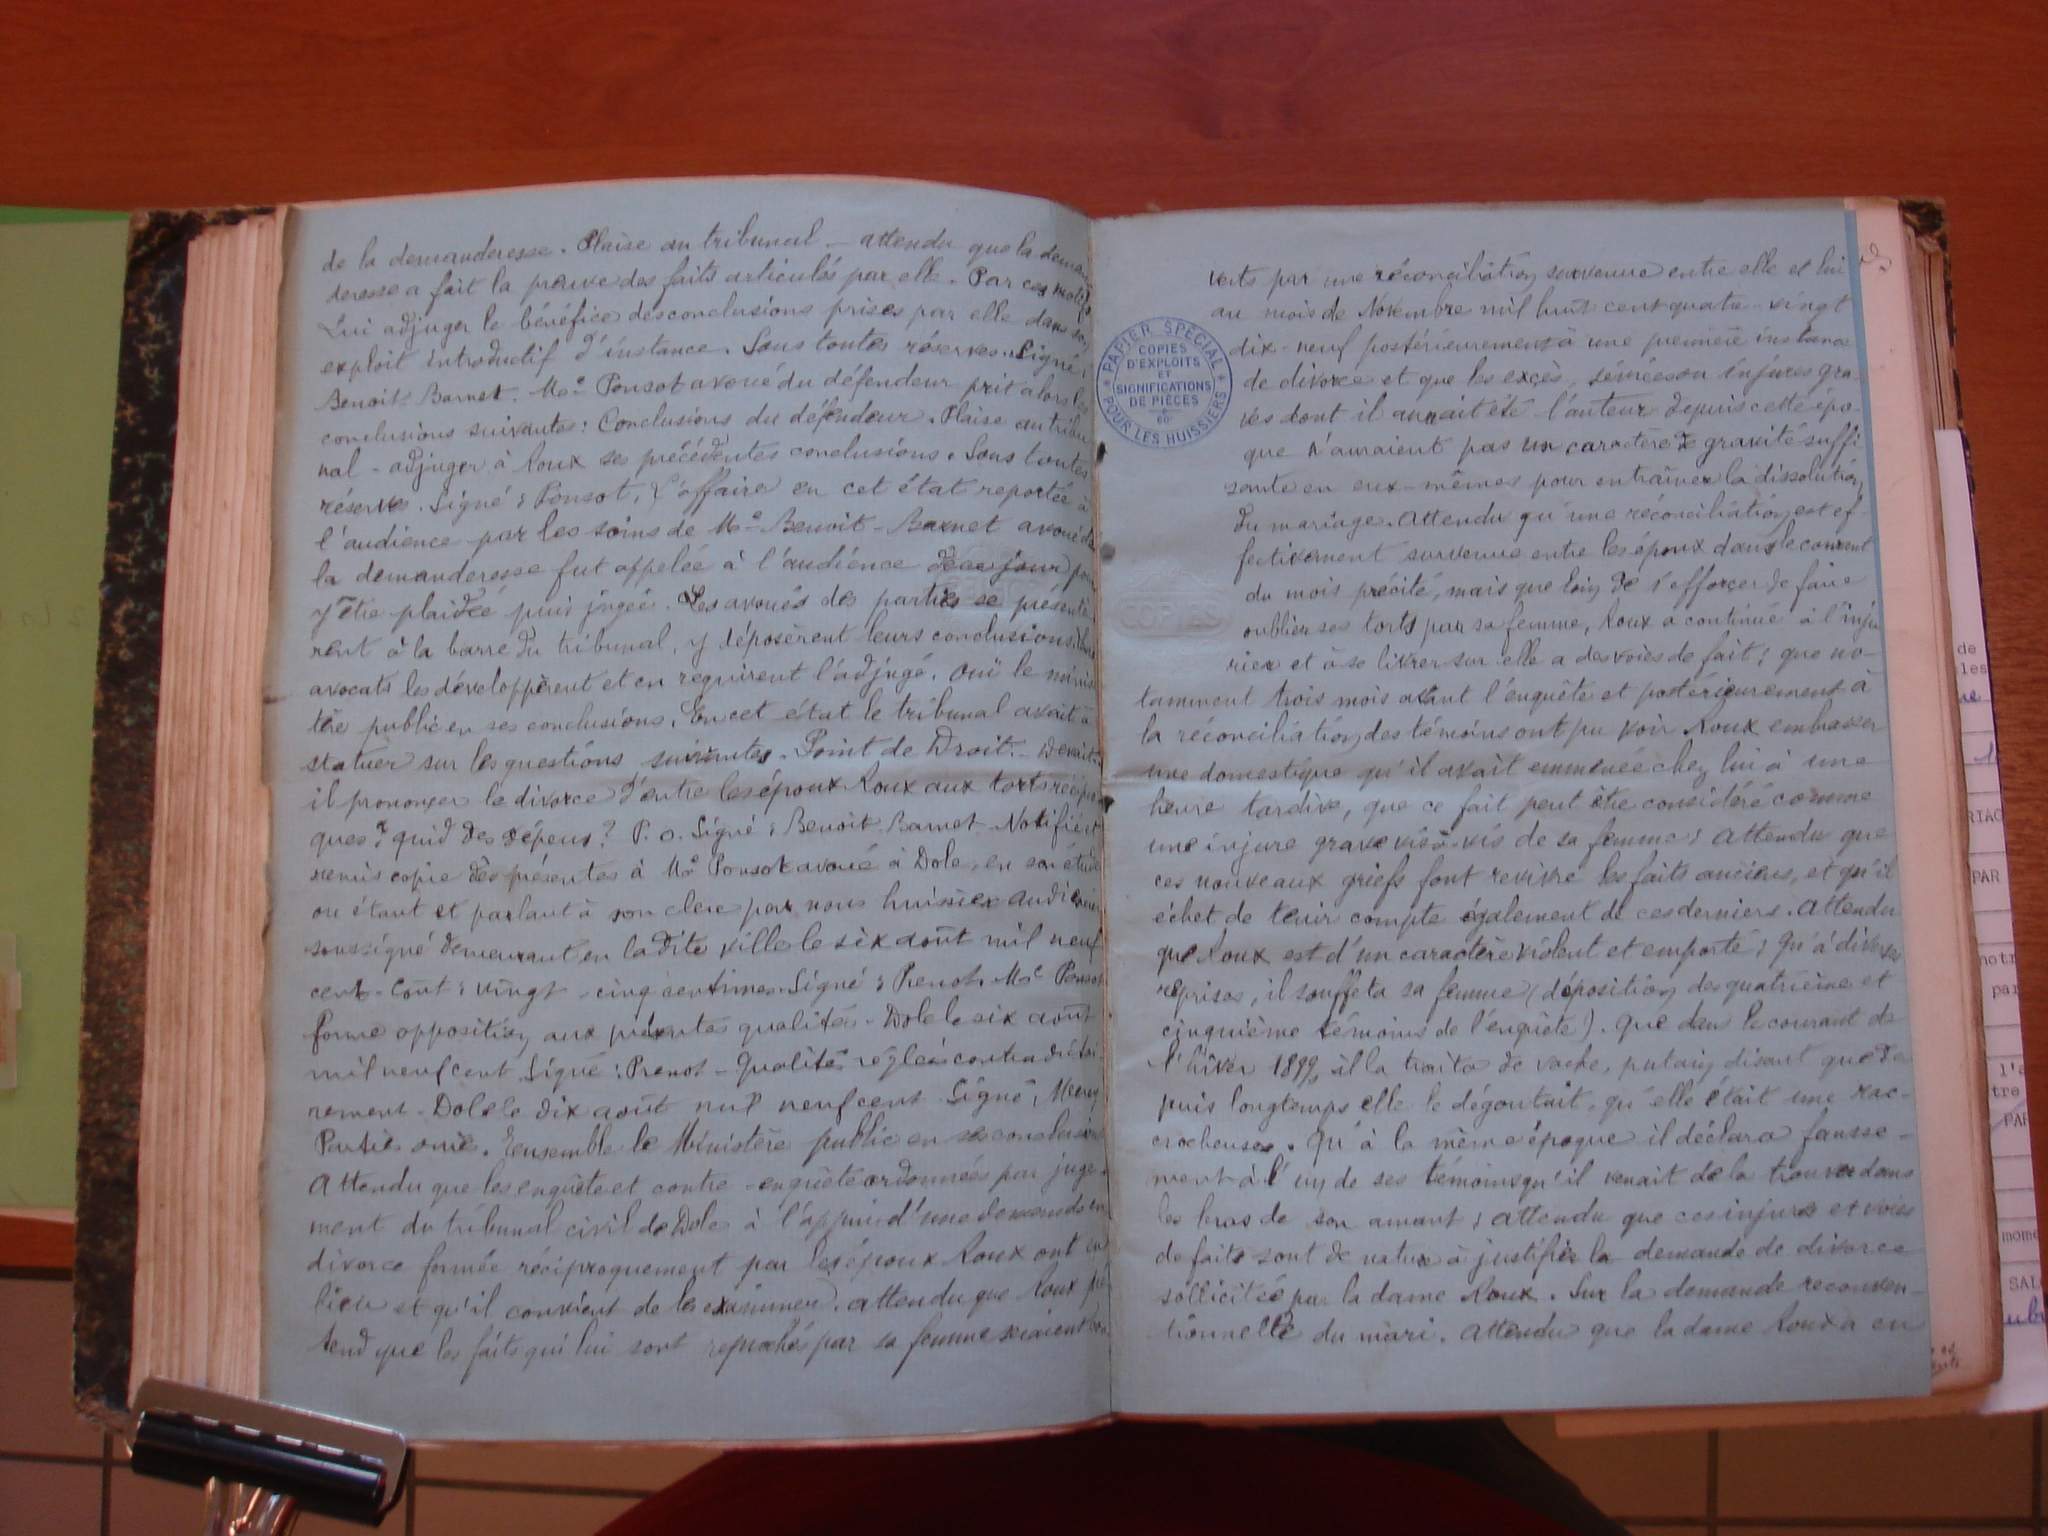 de la demanderesse. Plaise au tribunal - attendu que la deman
deresse a fait la preuve des faits articulés par elle. Par ces motifs
Lui adjuger le bénéfice des conclusions prises par elle dans son
exploit introductif d'instance. Sous toutes réserves. Signé:
Benoit-Barnet. Me Ponsot avoué du défendeur prit alors les
conclusions suivantes: Conclusions du défendeur. Plaise au tribu
nal - adjuger à Roux ses précédentes conclusions. Sous toutes
réserves. Signé: Ponsot. L'affaire en cet état reportée à
l'audience par les soins de Me Benoit-Barnet avoué de
la demanderesse fut appelée à l'audience de ce jour pour
y être plaidée puis jugée. Les avoués des parties se présentè
rent à la barre du tribunal, y déposèrent leurs conclusions. Leurs
avocats les développèrent et en requirent l'adjugé. Ouï le minis
tère public en ses conclusions. En cet état le tribunal avait à
statuer sur les questions suivantes. Point de Droit. - Devait-
il prononcer le divorce d'entre les époux Roux aux torts récipro
ques? quid des dépens? P. o. Signé: Benoit Barnet - Notifié et
remis copie des présentes à Me Ponsot avoué à Dole, en son étude
ou étant et parlant à son clerc par nous huissier audiencier
soussigné demeurant en la dite ville le six août mil neuf
cent. Coût: vingt-cinq centimes. Signé: Prenot. Me Ponsot
forme opposition aux présentes qualités - Dole le six août
mil neuf cent. Signé: Prenot - Qualités réglées contradictoi
rement - Dole le dix août mil neuf cent. Signé:
Partie ouïe. Ensemble le Ministère public en ses conclusions
Attendu que les enquête et contre-enquête ordonnées par juge
ment du tribunal civil de Dole à l'appui d'une demande en
divorce formée réciproquement par les époux Roux ont eu
lieu et qu'il convient de les examiner. Attendu que Roux pré
tend que les faits qui lui sont reprochés par sa femme seraient cou
PAPIER SPÉCIAL
COPIES
D'EXPLOITS
ET
SIGNIFICATIONS
DE PIÈCES
60c
POUR LES HUISSIERS
COPIES
verts par une réconciliation survenue entre elle et lui
au mois de Novembre mil huit cent quatre-vingt
dix-neuf postérieurement à une première instance
de divorce et que les excès, sévices ou injures gra-
ves dont il aurait été l'auteur depuis cette épo-
que n'auraient pas un caractère de gravité suffi
sante en eux-mêmes pour entraîner la dissolution
du mariage. Attendu qu'une réconciliation est ef-
fectivement survenue entre les époux dans le courant
du mois précité, mais que loin de s'efforcer de faire
oublier ses torts par sa femme, Roux a continué à l'inju
rier et à se livrer sur elle a des voies de fait; que no-
tamment trois mois avant l'enquête et postérieurement à
la réconciliation, des témoins ont pu voir Roux embrasser
une domestique qu'il avait emmenée chez lui à une
heure tardive, que ce fait peut être considéré comme
une injure grave vis-à-vis de sa femme; Attendu que
ces nouveaux griefs font revivre les faits anciens, et qu'il
échet de tenir compte également de ces derniers. Attendu
que Roux est d'un caractère violent et emporté; Qu'à diverses
reprises, il souffleta sa femme (déposition des quatrième et
cinquième témoins de l'enquête). Que dans le courant de
l'hiver 1899, il la traita de vache, putain, disant que de
puis longtemps elle le dégoutait, qu'elle était une rac-
crocheuse. Qu'à la même époque il déclara fausse-
ment à l'un de ses témoins qu'il venait de la trouver dans
les bras de son amant; Attendu que ces injures et voies
de faits sont de nature à justifier la demande de divorce
sollicitée par la dame Roux. Sur la demande reconven-
tionnelle du mari. Attendu que la dame Roux a eu